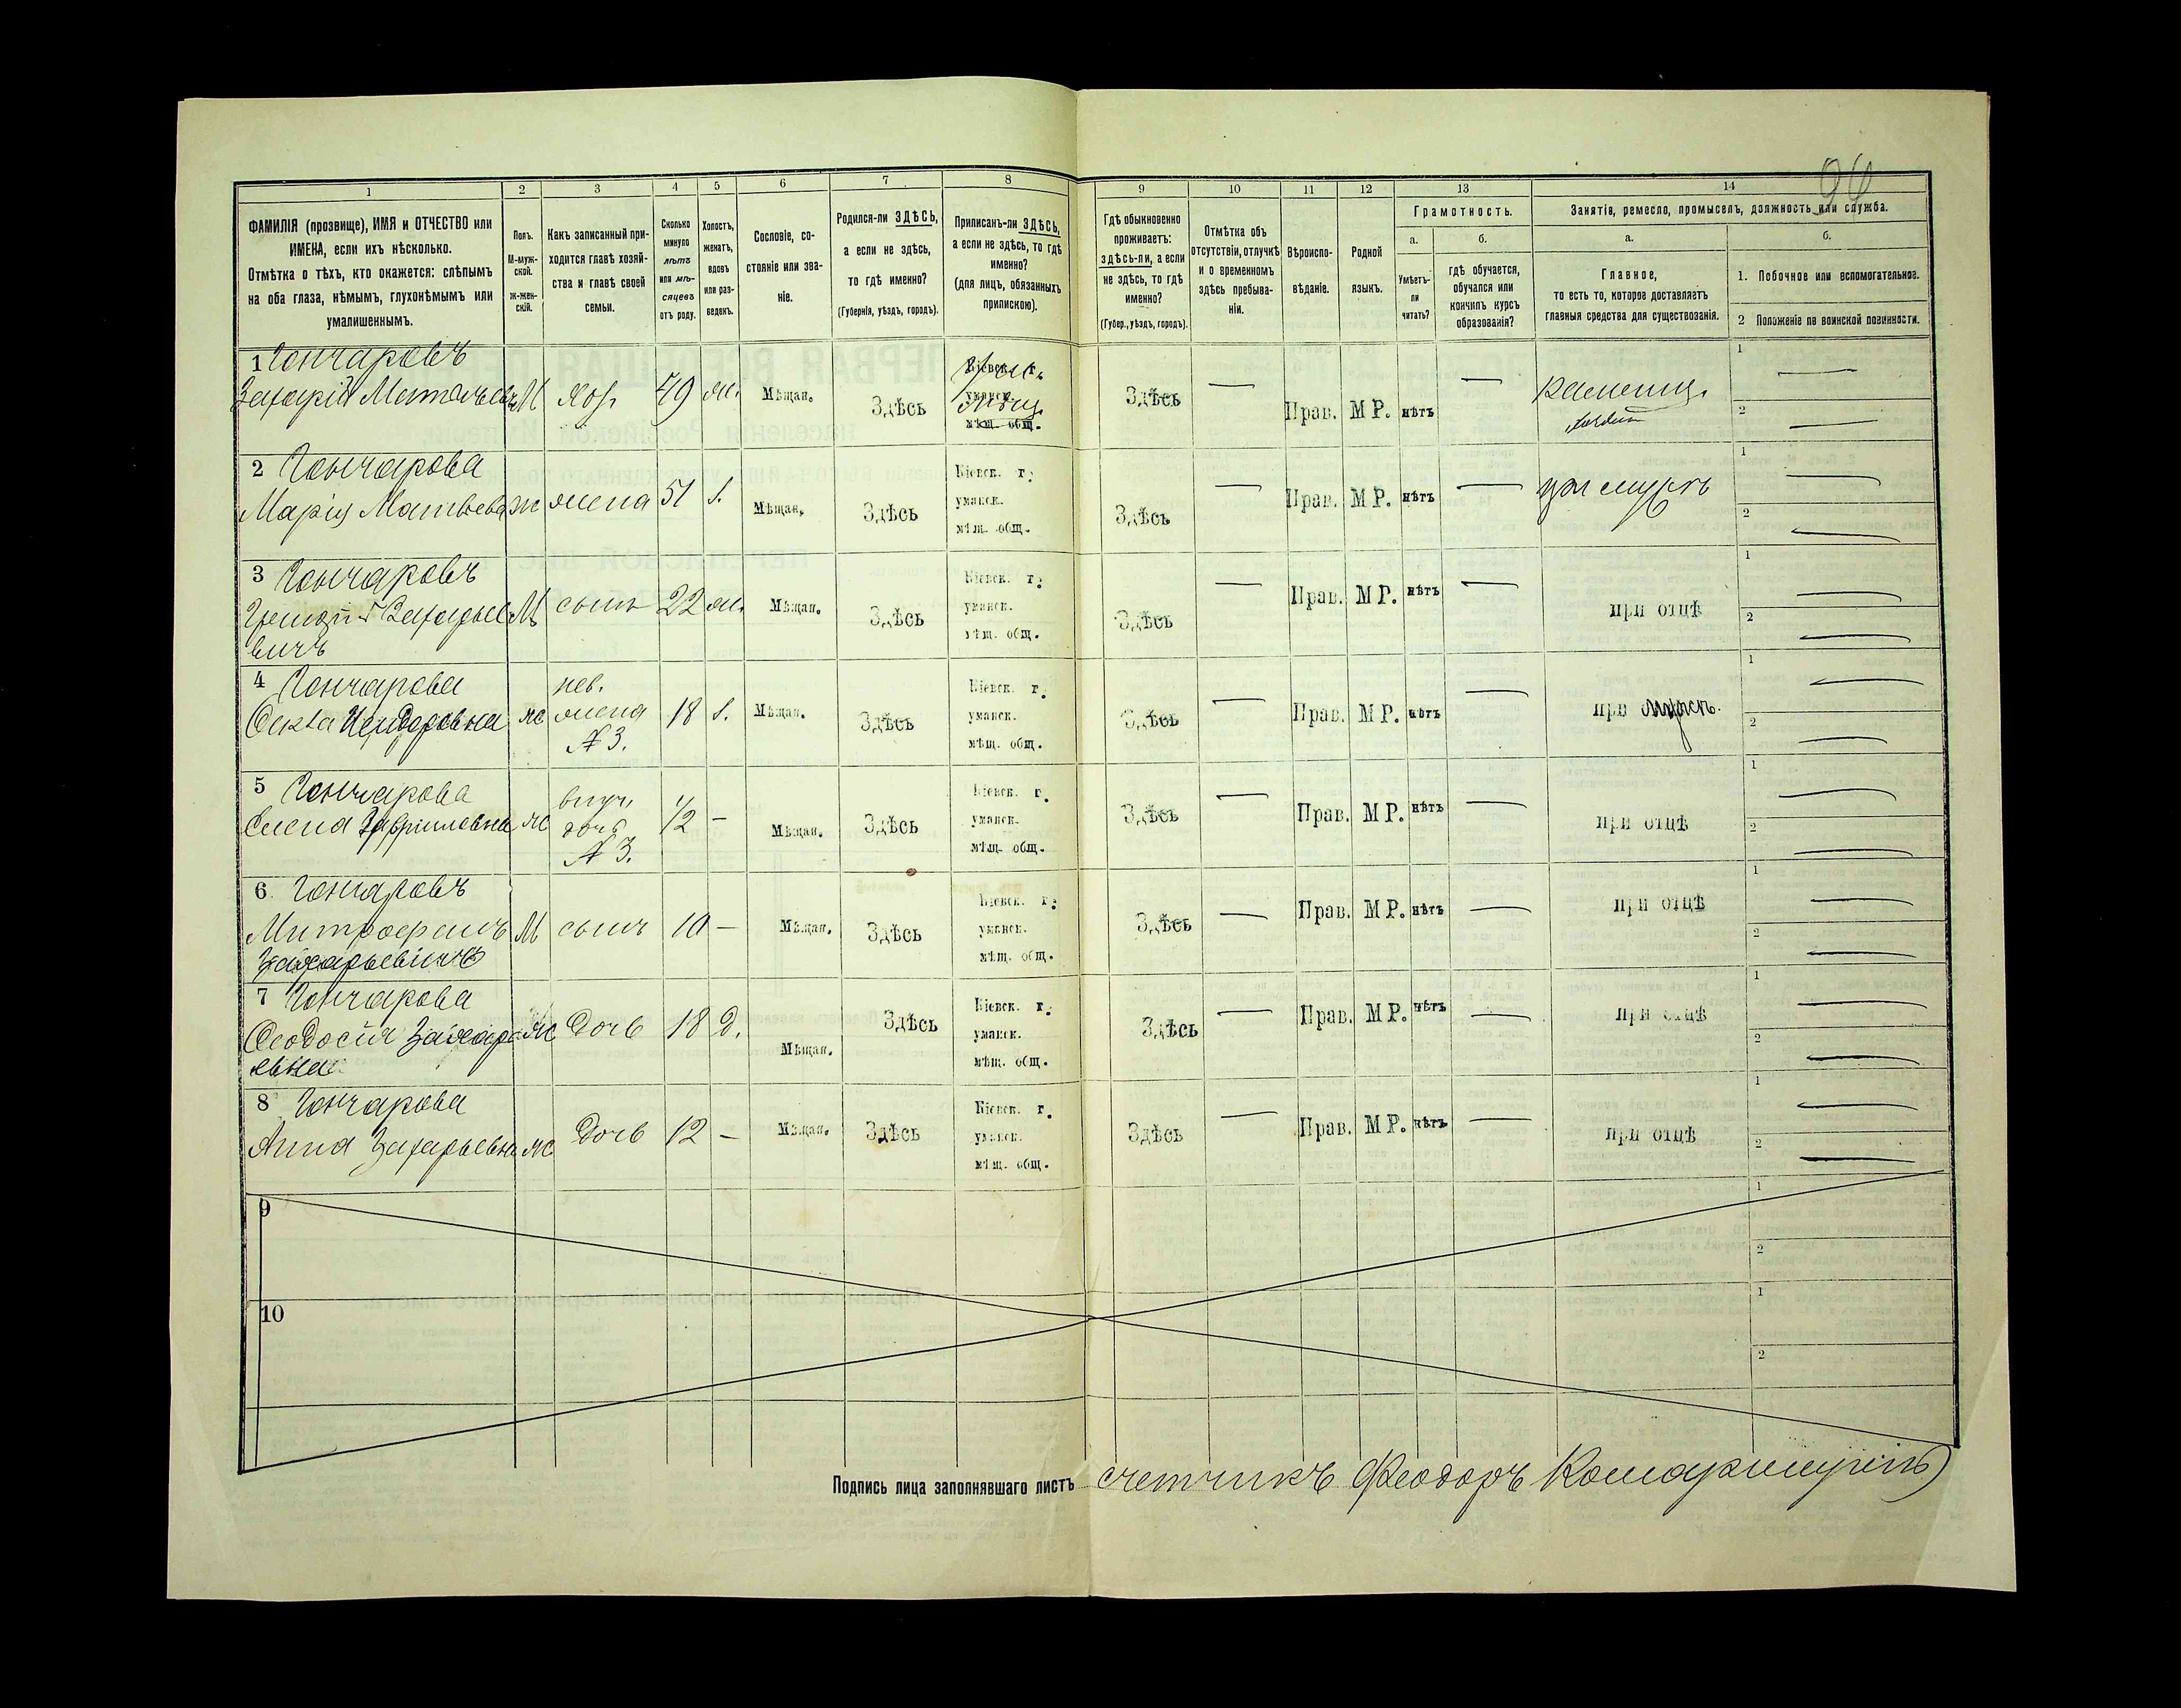 94
1 2 3 4 5 6 7 8 9 10 11 12 13 14
ФАМИЛІЯ (прозвище), ИМЯ и ОТЧЕСТВО или
ИМЕНА, если ихъ нѣсколько.
Отмѣтка о тѣхъ, кто окажется: слѣпымъ
на оба глаза, нѣмымъ, глухонѣмымъ или
умалишеннымъ.
Полъ.
М-муж-
ской.
ж-жен-
скій.
Какъ записанный при-
ходится главѣ хозяй-
ства и главѣ своей
семьи.
Сколько
минуло
лѣтъ
или мѣ-
сяцевъ
отъ роду.
Холостъ,
женатъ,
вдовъ
или раз-
веденъ.
Сословіе, со-
стояніе или зва-
ніе.
Родился-ли ЗДѢСЬ,
а если не здѣсь,
то гдѣ именно?
(Губернія, уѣздъ, городъ).
Приписанъ-ли ЗДѢСЬ,
а если не здѣсь, то гдѣ
именно?
(для лицъ, обязанныхъ
припискою).
Гдѣ обыкновенно
проживаетъ:
здѣсь-ли, а если
не здѣсь, то гдѣ
именно?
(Губер., уѣздъ, городъ).
Отмѣтка объ
отсутствіи, отлучкѣ
и о временномъ
здѣсь пребыва-
ніи.
Вѣроиспо-
вѣданіе.
Родной
языкъ.
Грамотность.
а.
Умѣетъ-
ли
читать?
б.
гдѣ обучается,
обучался или
кончилъ курсъ
образованія?
Занятія, ремесло, промыселъ, должность или служба.
а.
Главное,
то есть то, которое доставляетъ
главныя средства для существованія.
б.
1. Побочное или вспомогательное.
2 Положеніе по воинской повинности.
1 Гончаровъ
Захарій М хоз. 49 ж. Мѣщан. Здѣсь Кіевск. г. уманск. мѣщ. общ. Здѣсь — Прав. МР. нѣтъ — 1 —
2 —
2 Гончарова
Марія Матвѣева ж жена 51 з. Мѣщан. Здѣсь Кіевск. г. уманск. мѣщ. общ. Здѣсь — Прав. МР. нѣтъ — при мужѣ 1 —
2 —
3 Гончаровъ
Захарье М сынъ 22 ж. Мѣщан. Здѣсь Кіевск. г. уманск. мѣщ. общ. Здѣсь — Прав. МР. нѣтъ — при отцѣ 1 —
вичъ 2 —
4 Гончарова
Ѳекла ж нев. жена № 3. 18 з. Мѣщан. Здѣсь Кіевск. г. уманск. мѣщ. общ. Здѣсь — Прав. МР. нѣтъ — при мужѣ. 1 —
2 —
5 Гончарова
Елена ж внуч. дочь № 3. 1/2 — Мѣщан. Здѣсь Кіевск. г. уманск. мѣщ. общ. Здѣсь — Прав. МР. нѣтъ — при отцѣ 1 —
2 —
6 Гончаровъ
Митрофанъ М сынъ 10 — Мѣщан. Здѣсь Кіевск. г. уманск. мѣщ. общ. Здѣсь — Прав. МР. нѣтъ — при отцѣ 1 —
Захарьевичъ 2 —
7 Гончарова
Ѳеодосія Захарь ж дочь 18 д. Мѣщан. Здѣсь Кіевск. г. уманск. мѣщ. общ. Здѣсь — Прав. МР. нѣтъ — при отцѣ 1 —
евна 2 —
8 Гончарова
Анна Захарьевна ж дочь 12 — Мѣщан. Здѣсь Кіевск. г. уманск. мѣщ. общ. Здѣсь — Прав. МР. нѣтъ — при отцѣ 1 —
2 —
9 1
2
10 1
2
Подпись лица заполнявшаго листъ счетчикъ Феодоръ